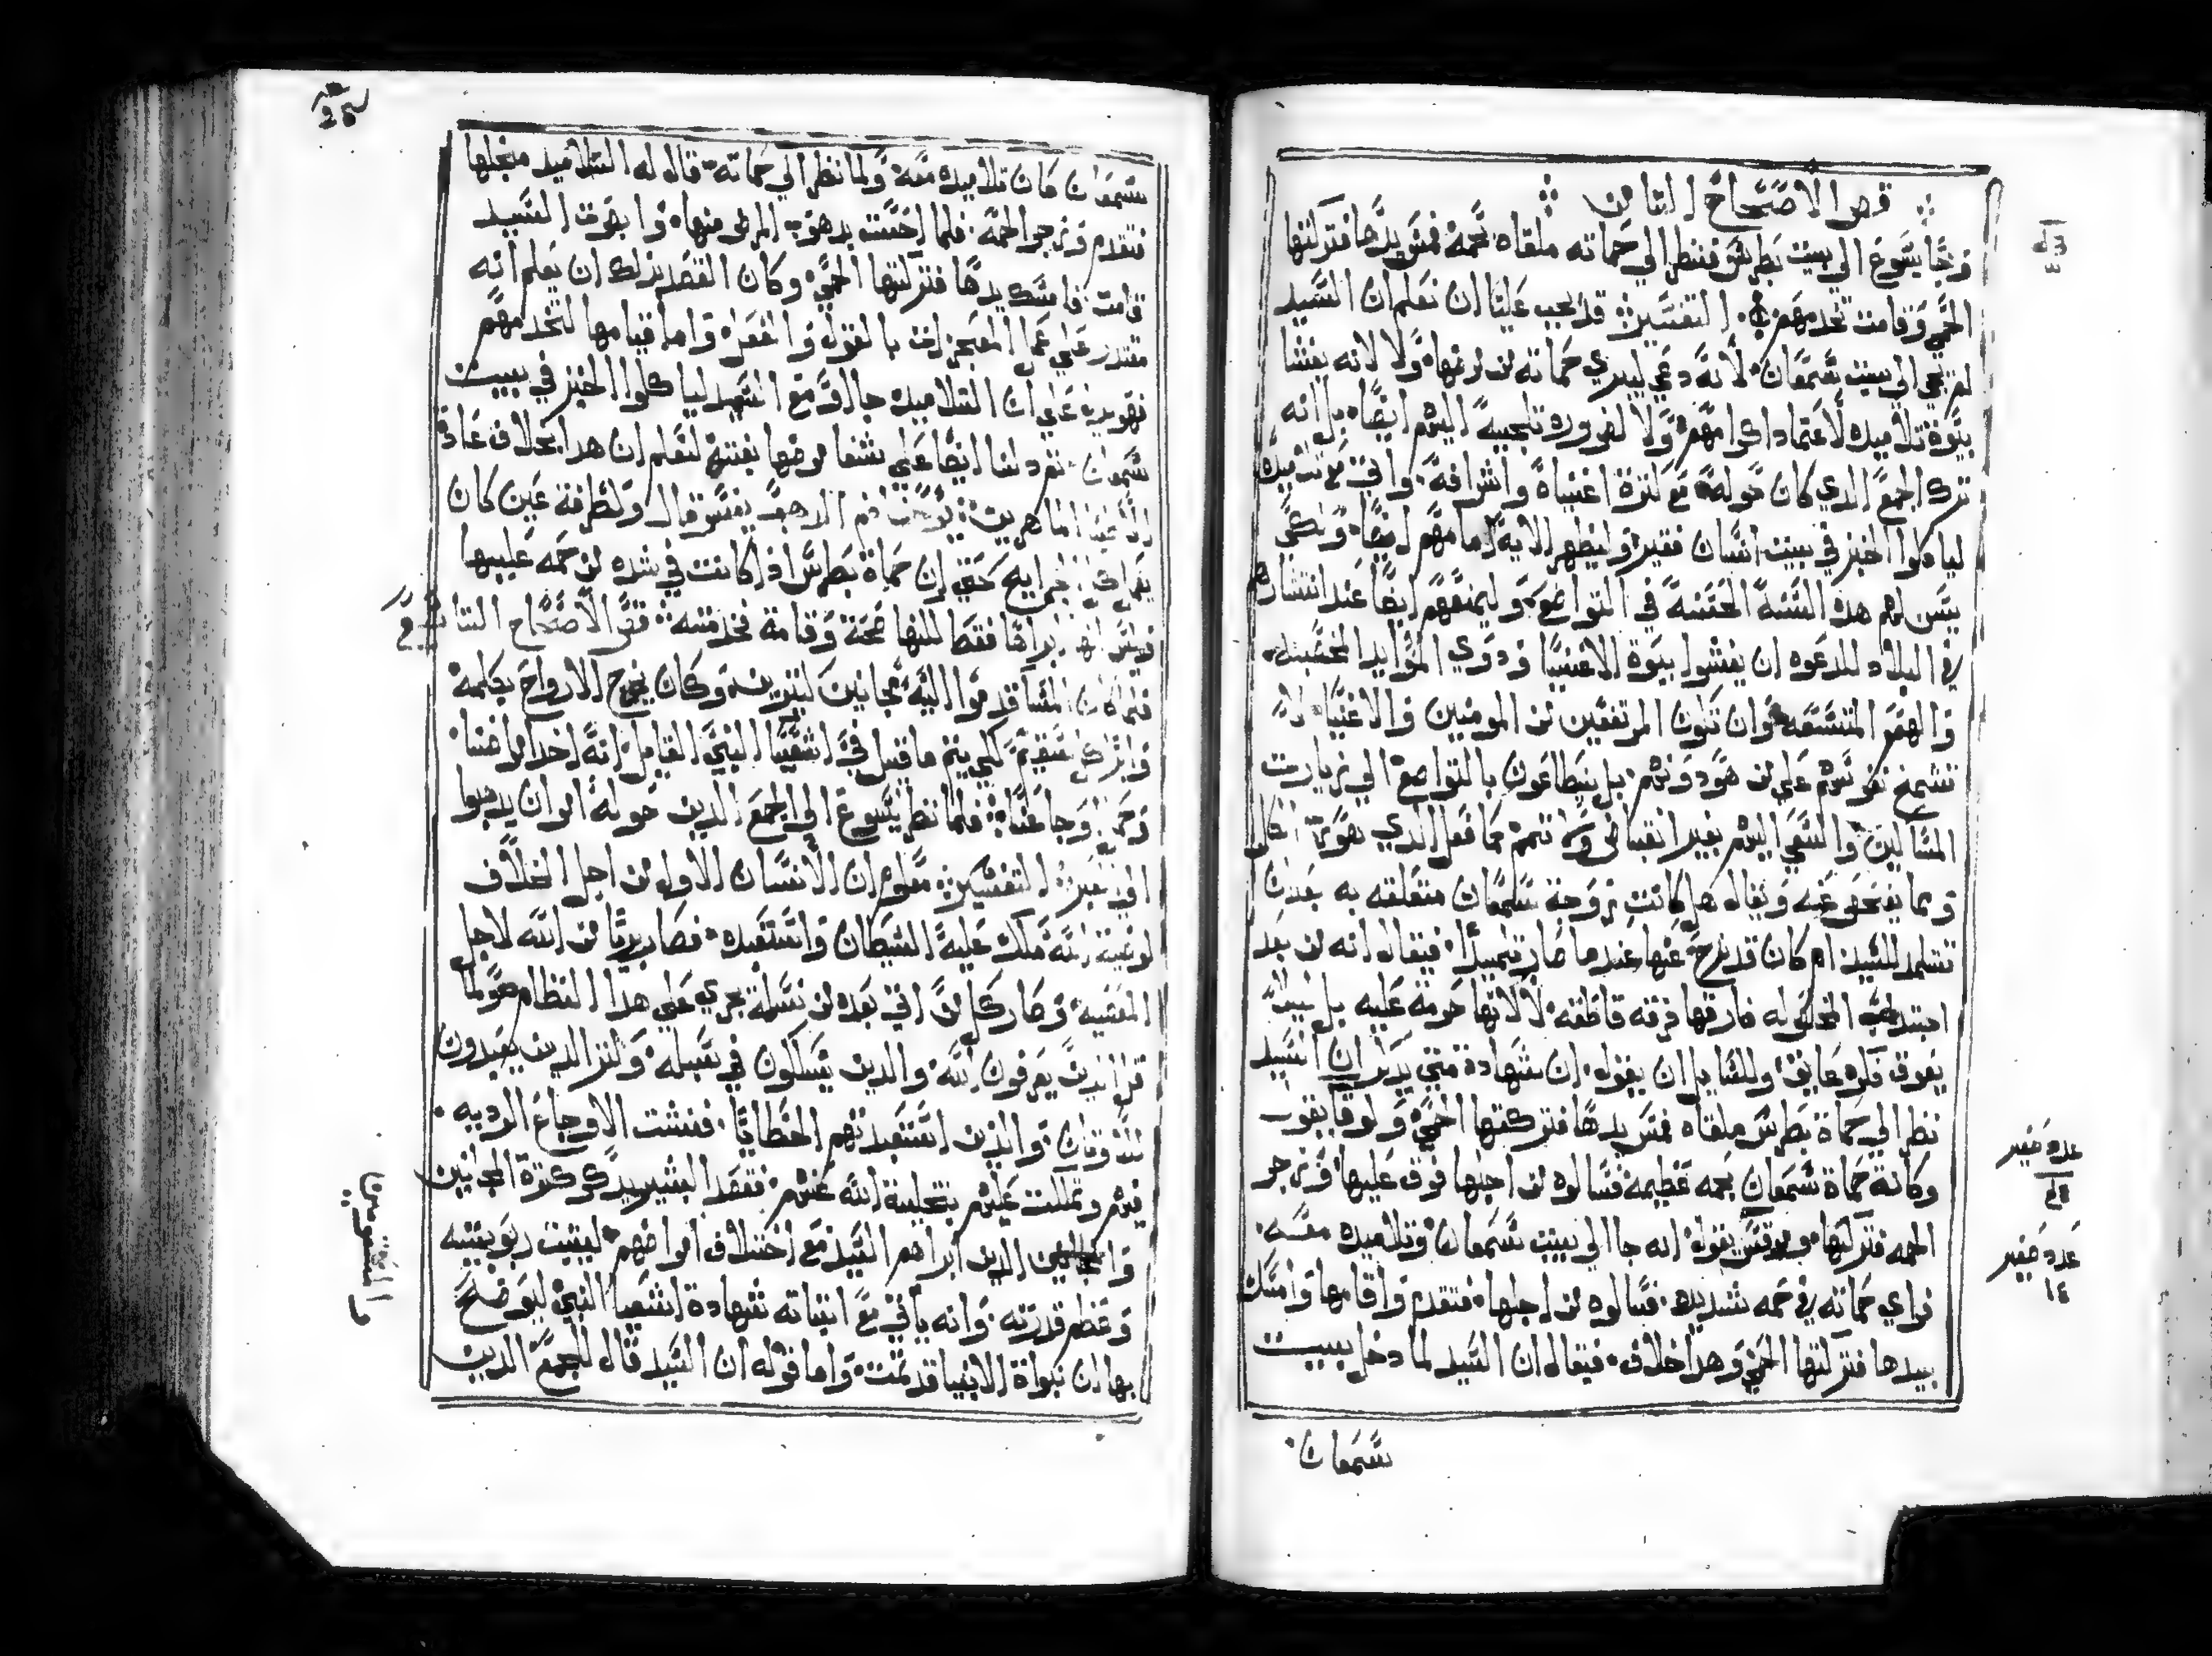 قص الاصحاح التامن
وجا يسوع الي بيت بطرس فنظر الي حماته ملقاه بحمه فمس يدها فتركتها
الحمي وقامت تخدمهم. التفسير قد يجب علينا ان نعلم ان السيد
لم يجي الي بيت سمعان لانه دعي ليبري حماته من مرضها ولا لانه يغشا
بيوة تلاميده لاعتماد اكرامهم ولا لضروره تلجيه اليهم ايضا بل انه
ترك الجمع الدي كان حوله مع كترة اغنياه واشرافه وافي مع تلاميده
لياكلوا الخبز في بيت انسان فقير وليظهر الايه امامهم ايضا ولكي
يسن لهم هده السنه الحسنه في التواضع وليمنعهم ايضا عند انتشارهم
في البلاد للدعوه ان يغشوا بيوة الاغنيا ودوي الموايد الخصبه
والهمم المتسعه وان تكون المرتفعين من المومنين والاغنيا لا
تشمخ نفوسهم علي من هو دونهم بل يتطاعون بالتواضع الي زيارت
المساكين والسعي اليهم بغير انقباض كما فعل الدي هو
ومما يفحص عنه ويقال هل كانت زوجة سمعان متعلقه به بعد ان
تتلمد للسيد ام كان قد نزح عنها عندما صار تلميدا فيقال انه من بعد
اجتداب المخلص له فارقها فرقه قاطعه لا لانها حرمة عليه بل ليلا
يعوق فكره عايق وللسايل ان يقول ان شهادة متي يدكر ان السيد
نظر الي حماة بطرس ملقاه فمس يدها فتركتها الحمي ولوقا يقول
وكانة حماة سمعان بحمه عظيمه فسالوه من اجلها فوقف عليها وزجر
الحمه فتركتها ومرقس يقول انه جا الي بيت سمعان وتلاميده معه
فراي حماته في حمه شديده فسالوه من اجلها فتقدم واقامها وامسك
بيدها فتركتها الحمي وهدا خلاف فيقال ان السيد لما دخل بييت
سمعان
عدد صغير
عدد صغير
١٤
سمعان كان تلاميده معه ولما نظر الي حماته قال له التلاميد من اجلها
فتقدم وزجر الحمه فلما احست بدهوب المرض منها وابصرت السيد
قامت فامسك يدها فتركتها الحمي وكان القصد بدلك ان يعلم انه
مقتدر علي عمل المعجزات بالقول والفعل واما قيامها لتخدمهم
فهو يدل علي ان التلاميده جاوا مع السيد لياكلوا الخبز في بييت
سمعان تفرد لنا ايضا علي شفا مرضها بغته لتعلم ان هدا بخلاف عادة
الاطبا الماهرين يوحنا فم الدهب يفسر قال ولطرفة عين كان
حقق ان حماة بطرس اذ كانت في شده من حمه عليها
ابراها فقط لكنها صحة وقامة فخدمته قص الاصحاح التاسع
فلما كان المسا قدموا اليه مجانين كتيرين وكان يخرج الارواح بكلمه
وابرا كل سقيم لكي يتم ما قيل في اشعيا النبي القايل انه اخد امراضنا
وحمل اوجاعنا فلما نظر يسوع الي الجمع الدين حوله امر ان يدهبوا
الي العبر التفسير معلوم ان الانسان الاول من اجل الخلاف
لوصية الله ملك عليه الشيطان واستعبده فصار بريا من الله لاجل
المعصيه وصار كل من اتي بعده من نسله يجري علي هدا النظام
يعرفون الله والدين يسلكون في سبله وكتر الدين يعبدون
للاوتان والدين استعبدتهم الخطايا ففشت الاوجاع الرديه
فيهم وتملكت عليهم بتخلية الله عنهم فقصد البشير يدكر كترة المجانين
الدين ابراهم السيد مع اختلاف امراضهم ليثبت ربوبيته
وعظم قدرته وانه ياتي مع اتباته شهادة اشعيا النبي ليوضح
بها ان نبواة الانبيا قد تمت واما قوله ان السيد قال للجمع الدين